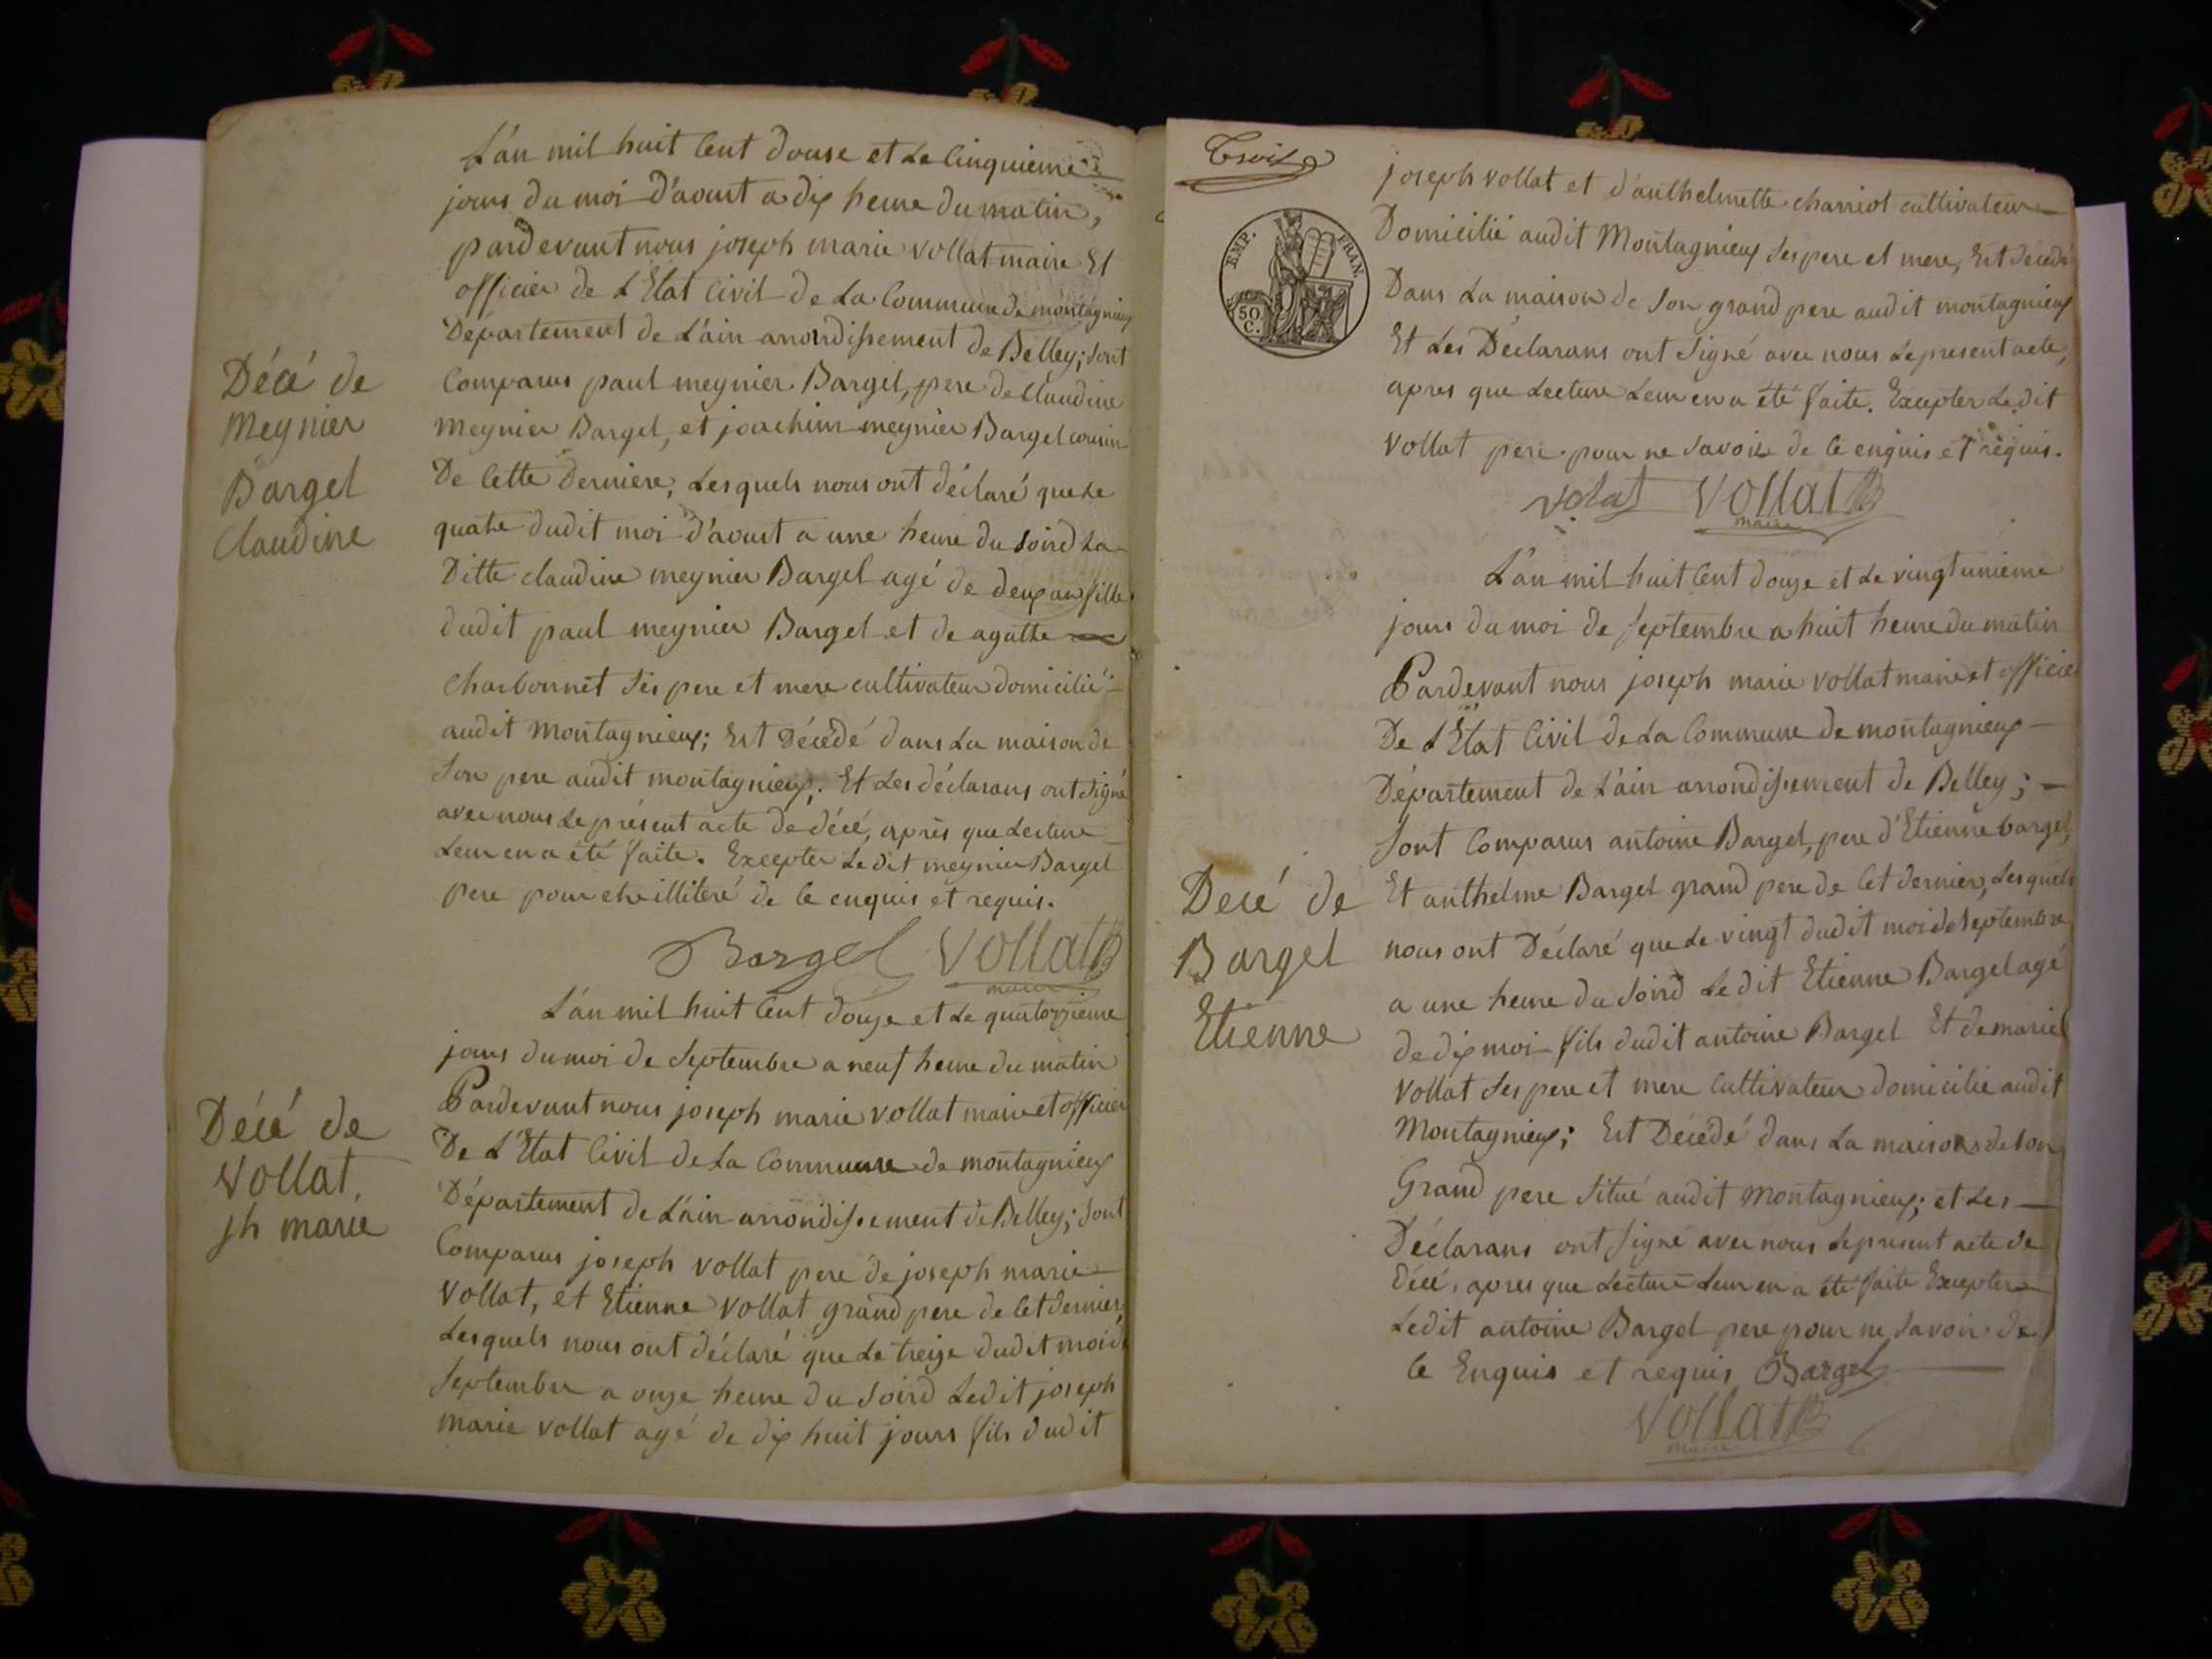 L'an mil huit Cent douse et Le Cinquieme
jours du moi d'aoust a dix heure du matin,
pardevant nous joseph marie vollat maire Et
officier de L'Etat Civil de La Commune de montagnieux
Département de L'ain arrondissement de Belley; sont
Comparus paul meynier Bargel, pere de claudine
meynier Bargel, et joachim meynier Bargel cousin
De Cette derniere, Lesquels nous ont déclaré que Le
quatre dudit moi d'aoust a une heure du soird La
Ditte claudine meynier Bargel agé de deux an fille
dudit paul meynier Bargel et de agathe
charbonnet ses pere et mere cultivateur domicilié
audit Montagnieux; Est Décédé dans La maison de
son pere audit montagnieux; Et Les déclarans ont signé
avec nous Le présent acte de décé, après que Lecture
Leur en a été faite. Excepter Le dit meynier Bargel
pere pour etre illiteré de Ce enquis et requis.
Bargel Vollat
maire
Décé de
Meynier
Bargel
Claudine
L'an mil huit Cent douze et Le quatorzieme
jours du moi de septembre a neuf heure du matin
Pardevant nous joseph marie vollat maire et officier
De L'Etat Civil de La Commune de montagnieux
Département de L'ain arrondissement de Belley; sont
Comparus joseph vollat pere de joseph marie
Vollat, et Etienne Vollat grand pere de Cet dernier,
Lesquels nous ont déclaré que Le treize dudit moi de
septembre a onze heure du soird Ledit joseph
marie vollat agé de dix huit jours fils dudit
Décé de
Vollat.
jh marie
Trois
EMP. FRAN.
50
C.
joseph vollat et d'anthelmette charriot cultivateur
Domicilié audit Montagnieux ses pere et mere, Est décédé
Dans La maison de son grand pere audit montagnieux
Et Les Déclarans ont signé avec nous Le present acte,
apres que Lecture Leur en a été faite. Excepter Le dit
Vollat pere pour ne savoir de Ce enquis et requis.
volat Vollat
maire
L'an mil huit Cent douze et Le vingt unieme
jours du moi de septembre a huit heure du matin
Pardevant nous joseph marie vollat maire et officier
De L'Etat Civil de La Commune de montagnieux
Département de L'ain arrondissement de Belley;
Sont Comparus antoine Bargel, pere d'Etienne bargel,
Et anthelme Bargel grand pere de Cet dernier, Lesquels
nous ont Déclaré que Le vingt dudit moi de septembre
a une heure du soird Le dit Etienne Bargel agé
de dix moi fils dudit antoine Bargel Et de marie
Vollat ses pere et mere Cultivateur domicilié audit
Montagnieux; Est Décédé dans La maison de son
Grand pere situé audit Montagnieux; et Les
Déclarans ont signé avec nous Le present acte de
décé, apres que Lecture Leur en a été faite Excepter
Ledit antoine Bargel pere pour ne savoir de
Ce Enquis et requis Bargel
Vollat
maire
Decé de
Bargel
Etienne